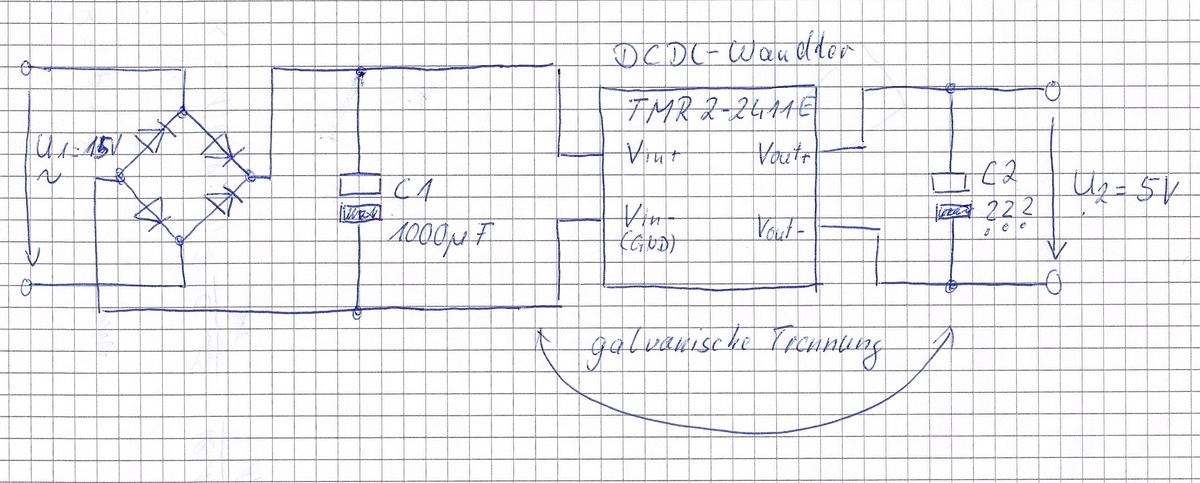 DCDC-Wandler
TMR 2-2411E
U1=15V
~
Vin+
Vout+
C1
1000µF
Vin-
(GND)
Vout-
C2
???
U2=5V
galvanische Trennung